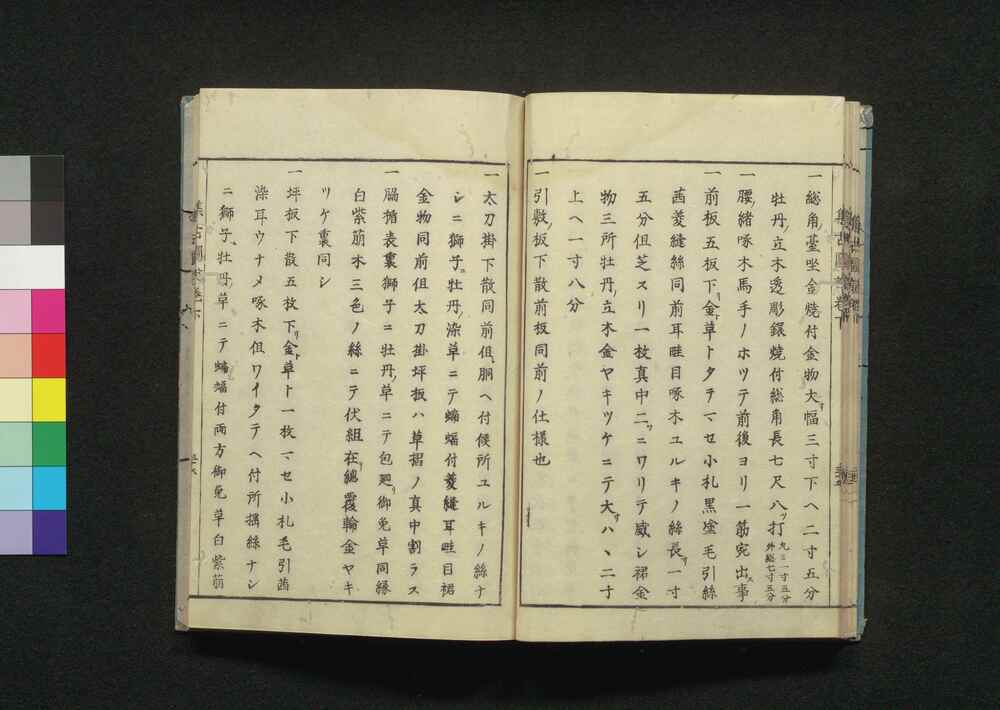 一総角ノ䥫坐金燒付金物大サ幅三寸下ヘ二寸五分
牡丹ノ立木透彫鐶燒付総角長七尺八ツ打 丸ミ一寸五分 外総七寸五分
一腰ノ緒啄木馬手ノホツテ前後ヨリ一筋宛出ス事
一前板五板下リ金ト草トタテマセ小札黒塗毛引絲
茜菱縫絲同前耳畦目啄木ユルキノ絲長サ一寸
五分但芝スリ一枚真中二ツニワリテ威シ裾金
物三所牡丹ノ立木金ヤキツケニテ大サハヽ二寸
上ヘ一寸八分
一引敷ノ板下散前板同前ノ仕様也
一太刀掛下散同前但シ胴ヘ付候所ユルキノ絲ナ
シニ獅子ニ牡丹ノ染革ニテ蝙蝠付菱縫耳畦目裾
金物同前但太刀掛坪板ハ草摺ノ真中割ラス
一脇楯表裏獅子ニ牡丹ノ草ニテ包廻リ御免草同縁
白紫萠木三色ノ絲ニテ伏組在リ總覆輪金ヤキ
ツケ裏同シ
一坪板下散五枚下リ金ト草ト一枚マセ小札毛引茜
染耳ウナメ啄木但ワイタテヘ付所搖絲ナシ
ニ獅子ニ牡丹ノ草ニテ蝙蝠付両方御免草白紫萠